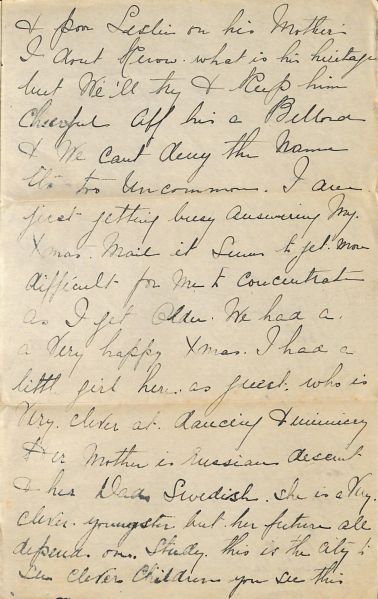 & poor Leslie on his Mother
I dont Know what is his heritage
but We'll try & Keep him
cheerful Aff his a
& We cant deny the Name
its too Uncommon. I am
just getting busy answering My
Xmas. Mail it Seems to get. More
difficult for Me to concentrate
as I get Older. We had a.
a Very happy Xmas. I had a
little girl here. as guest. who is
Very. clever at. dancing & mimicry
Her Mother is Russian descent
& her Dad Swedish. she is a Very.
clever. youngster but her future all
depends on. Study. this is the City to
See clever Children you see this